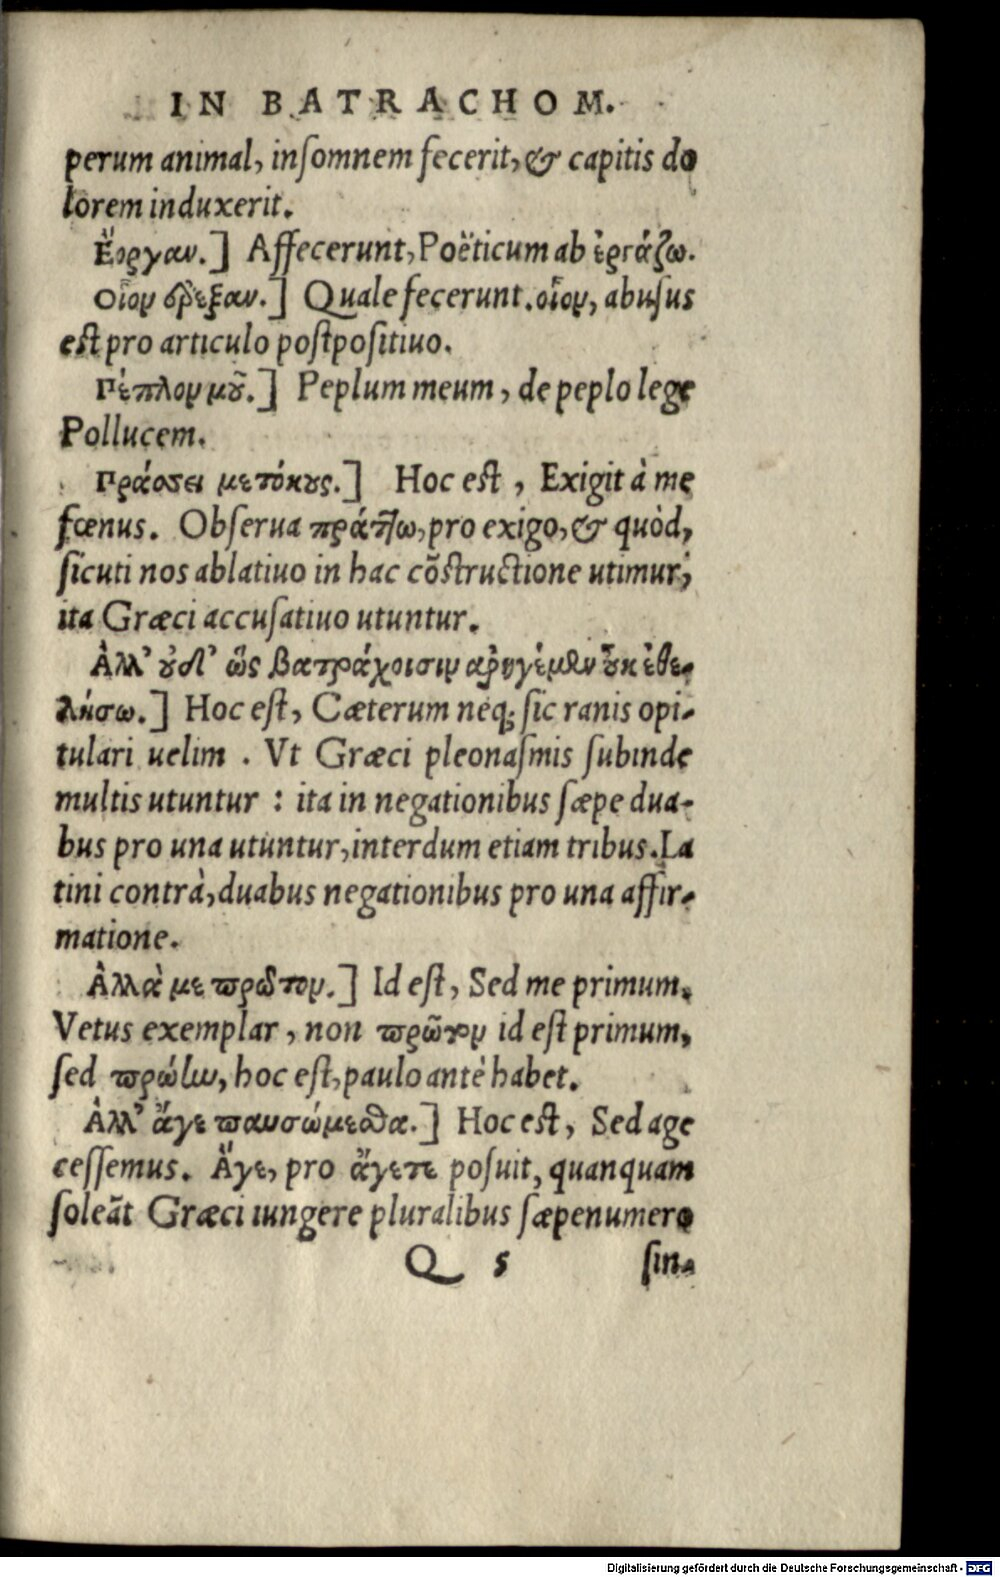 IN BATRACHOM.
perum animal, insomnem fecerit, & capitis do
lorem induxerit.
Ἔοργαν.] Affecerunt, Poëticum ab ἐργάζω.
Οἷον ἔρεξαν.] Quale fecerunt. οἷον, abusus
est pro articulo postpositiuo.
Πέπλον μοῦ.] Peplum meum, de peplo lege
Pollucem.
Πράσσει με τόκους.] Hoc est, Exigit à me
fœnus. Obserua πράττω, pro exigo, & quòd,
sicuti nos ablatiuo in hac cõstructione utimur,
ita Græci accusatiuo utuntur.
Ἀλλ' οὐδ' ὣς βατράχοισιν ἀρηγέμεν οὐκ ἐθε-
λήσω.] Hoc est, Cæterum neq; sic ranis opi-
tulari uelim. Vt Græci pleonasmis subinde
multis utuntur : ita in negationibus sæpe dua-
bus pro una utuntur, interdum etiam tribus. La
tini contrà, duabus negationibus pro una affir-
matione.
Ἀλλά με πρῶτον.] Id est, Sed me primum,
Vetus exemplar, non πρῶτον id est primum,
sed πρώην, hoc est, paulo antè habet.
Ἀλλ' ἄγε παυσώμεσθα.] Hoc est, Sed age
cessemus. Ἄγε, pro ἄγετε posuit, quanquam
soleãt Græci iungere pluralibus sæpenumero
Q 5 sin-
Digitalisierung gefördert durch die Deutsche Forschungsgemeinschaft - DFG